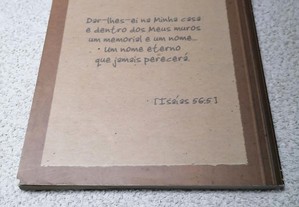 Dar-lhes-ei na Minha casa
e dentro dos Meus muros
um memorial e um nome...
• Um nome eterno
que jamais perecerá.
[Isaías 56:5]